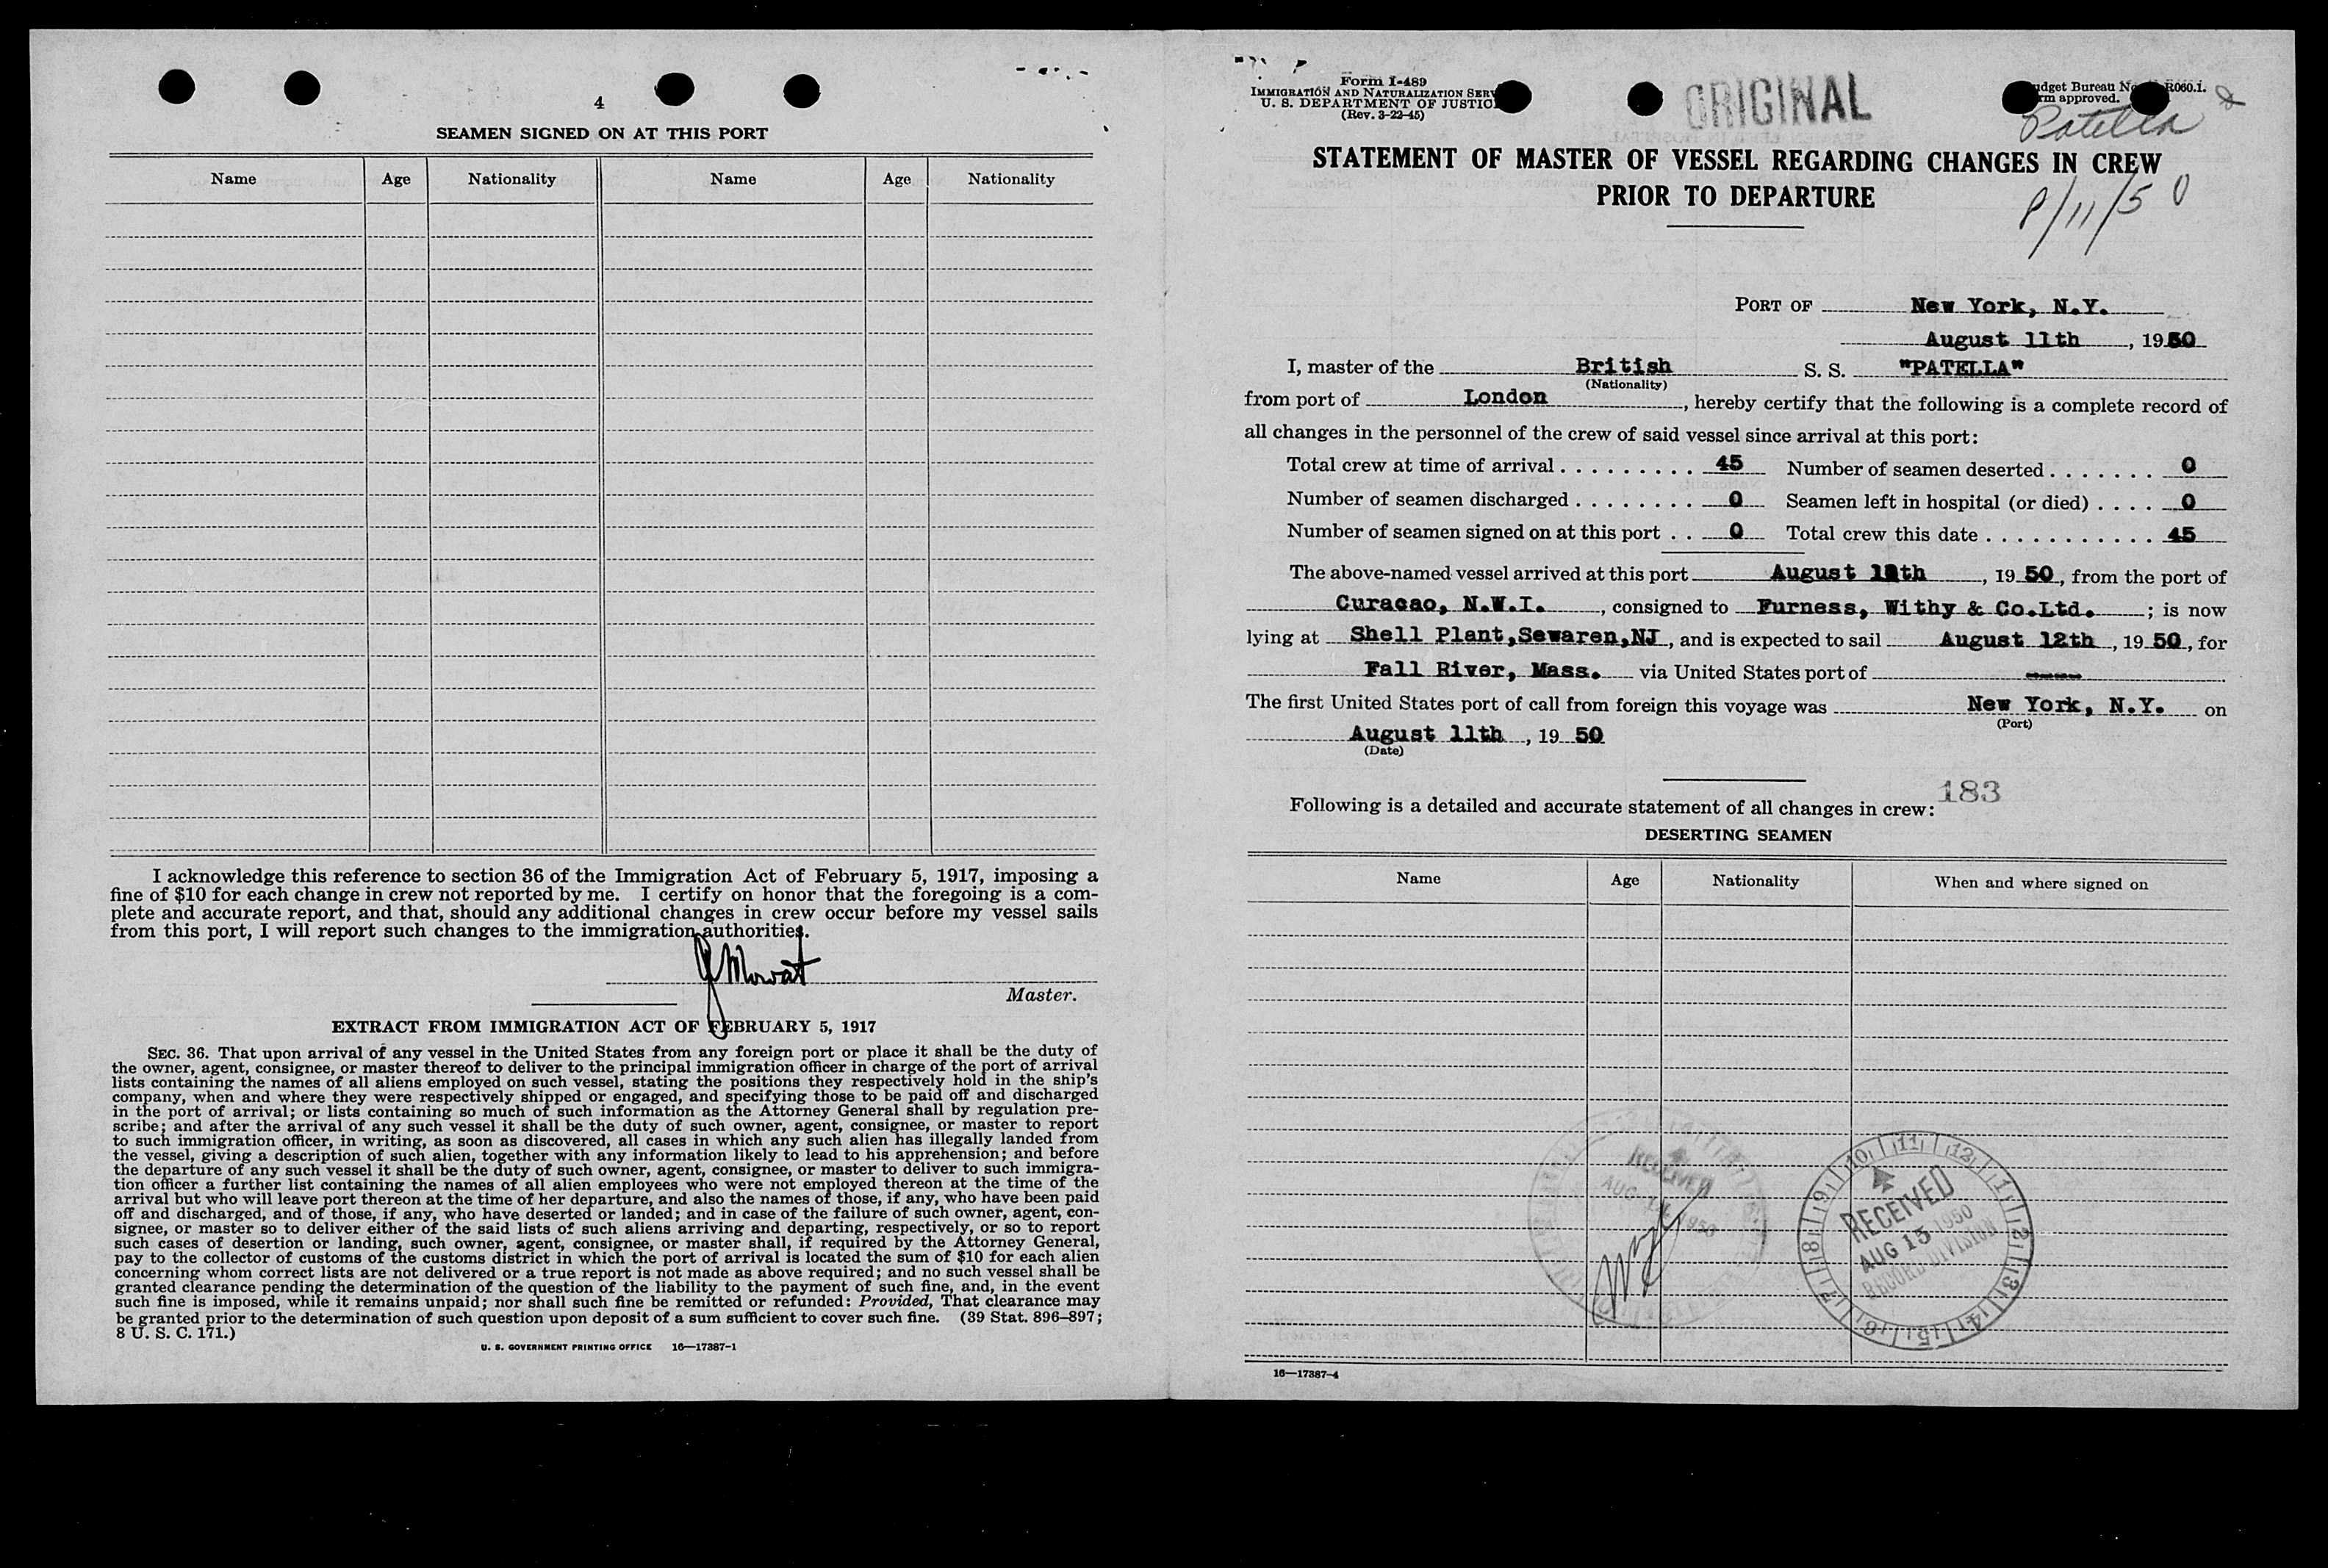 4
SEAMEN SIGNED ON AT THIS PORT
Name Age Nationality Name Age Nationality
I acknowledge this reference to section 36 of the Immigration Act of February 5, 1917, imposing a
fine of $10 for each change in crew not reported by me. I certify on honor that the foregoing is a com-
plete and accurate report, and that, should any additional changes in crew occur before my vessel sails
from this port, I will report such changes to the immigration authorities.
J Mowat
Master.
EXTRACT FROM IMMIGRATION ACT OF FEBRUARY 5, 1917
SEC. 36. That upon arrival of any vessel in the United States from any foreign port or place it shall be the duty of
the owner, agent, consignee, or master thereof to deliver to the principal immigration officer in charge of the port of arrival
lists containing the names of all aliens employed on such vessel, stating the positions they respectively hold in the ship's
company, when and where they were respectively shipped or engaged, and specifying those to be paid off and discharged
in the port of arrival; or lists containing so much of such information as the Attorney General shall by regulation pre-
scribe; and after the arrival of any such vessel it shall be the duty of such owner, agent, consignee, or master to report
to such immigration officer, in writing, as soon as discovered, all cases in which any such alien has illegally landed from
the vessel, giving a description of such alien, together with any information likely to lead to his apprehension; and before
the departure of any such vessel it shall be the duty of such owner, agent, consignee, or master to deliver to such immigra-
tion officer a further list containing the names of all alien employees who were not employed thereon at the time of the
arrival but who will leave port thereon at the time of her departure, and also the names of those, if any, who have been paid
off and discharged, and of those, if any, who have deserted or landed; and in case of the failure of such owner, agent, con-
signee, or master so to deliver either of the said lists of such aliens arriving and departing, respectively, or so to report
such cases of desertion or landing, such owner, agent, consignee, or master shall, if required by the Attorney General,
pay to the collector of customs of the customs district in which the port of arrival is located the sum of $10 for each alien
concerning whom correct lists are not delivered or a true report is not made as above required; and no such vessel shall be
granted clearance pending the determination of the question of the liability to the payment of such fine, and, in the event
such fine is imposed, while it remains unpaid; nor shall such fine be remitted or refunded: Provided, That clearance may
be granted prior to the determination of such question upon deposit of a sum sufficient to cover such fine. (39 Stat. 896–897;
8 U. S. C. 171.)
U. S. GOVERNMENT PRINTING OFFICE 16—17387-1
Form I-489
IMMIGRATION AND NATURALIZATION SERV
U. S. DEPARTMENT OF JUSTIC
(Rev. 3-22-45)
ORIGINAL
udget Bureau No R060.1.
rm approved.
Patella
STATEMENT OF MASTER OF VESSEL REGARDING CHANGES IN CREW
PRIOR TO DEPARTURE
8/11/50
PORT OF New York, N.Y.
August 11th, 1950
I, master of the British S. S. "PATELLA"
(Nationality)
from port of London, hereby certify that the following is a complete record of
all changes in the personnel of the crew of said vessel since arrival at this port:
Total crew at time of arrival 45 Number of seamen deserted 0
Number of seamen discharged 0 Seamen left in hospital (or died) 0
Number of seamen signed on at this port 0 Total crew this date 45
The above-named vessel arrived at this port August th, 19 50, from the port of
Curacao, N.W.I., consigned to Furness, Withy & Co.Ltd.; is now
lying at Shell Plant,Sewaren,NJ, and is expected to sail August 12th, 19 50, for
Fall River, Mass. via United States port of -----
The first United States port of call from foreign this voyage was New York, N.Y. on
(Port)
August 11th, 19 50
(Date)
183
Following is a detailed and accurate statement of all changes in crew:
DESERTING SEAMEN
Name Age Nationality When and where signed on
RECEIVED
AUG 1950
10 11 12 1 2 3 4 5 6 7 8 9
RECEIVED
AUG 15 1950
RECORD DIVISION
16—17387-4